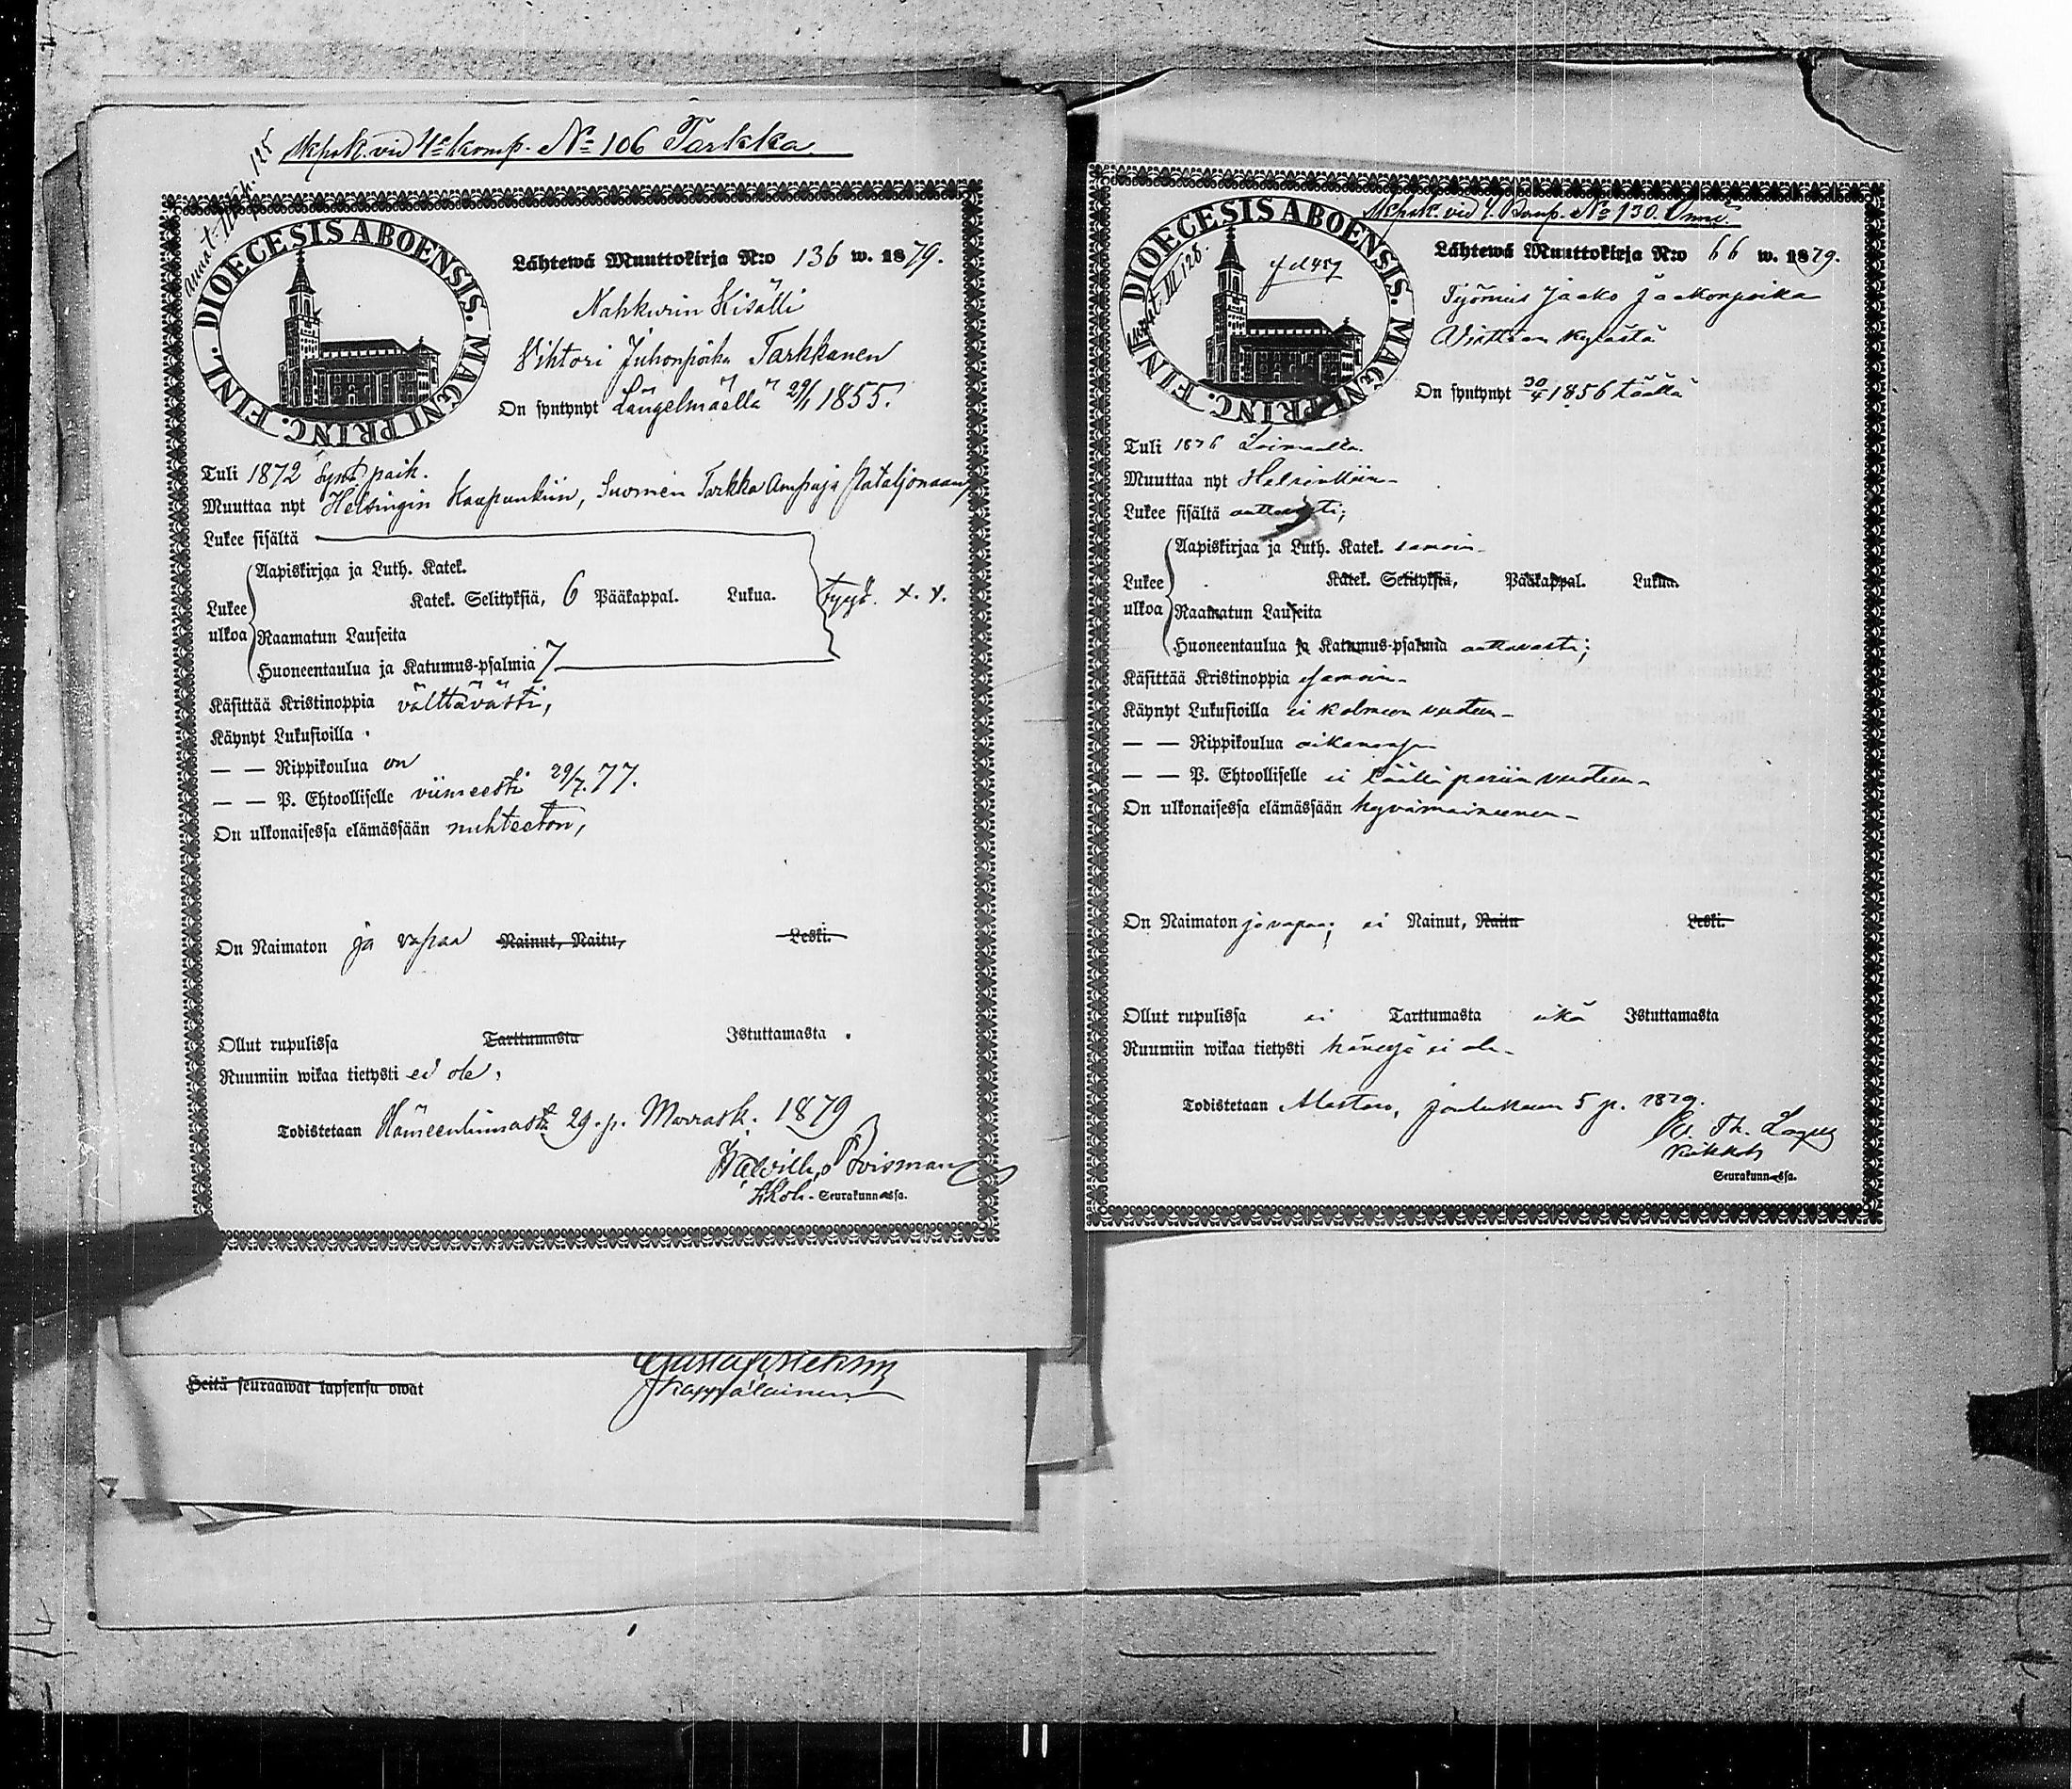 vid 4e komp. No 106 Tarkka
DIOECESIS ABOENSIS. MAGNI PRINC. FINL.
Lähtewä Muuttokirja N:o 136 w. 1879.
Nahkurin Kisälli
Vihtori Juhonpoika Tarkkanen
On syntynyt Längelmäellä 29/1 1855.
Tuli 1872 synt. paik.
Muuttaa nyt Helsingin Kaupunkiin, Suomen Tarkka Ampuja Pataljonaan,
Lukee sisältä
Lukee ulkoa
Aapiskirjaa ja Luth. Katek.
Katek. Selityksiä, 6 Pääkappal. Lukua.
Raamatun Lauseita
Huoneentaulua ja Katumus-psalmia 7
Käsittää Kristinoppia välttävästi,
Käynyt Lukusioilla
— — Rippikoulua on
— — P. Ehtoolliselle viimeesti 29/7.77.
On ulkonaisessa elämässään nuhteeton,
On Naimaton ja vapaa Nainut, Naitu, Leski.
Ollut rupulissa Tarttumasta Istuttamasta
Ruumiin wikaa tietysti ei ole,
Todistetaan Hämeenlinnasta 29. p. Marrask. 1879
Seurakunnassa.
Heitä seuraawat lapsensa owat
Kappalainen
vid 4. Komp. No 130.
DIOECESIS ABOENSIS. MAGNI PRINC. FINL.
Lähtewä Muuttokirja N:o 66 w. 1879.
Työmies Jaako Jaakonpoika
Virttaan kylästä
On syntynyt 30/4 1856 täällä
Tuli 1876 Loimaalta.
Muuttaa nyt Helsinkiin
Lukee sisältä auttavasti;
Lukee ulkoa
Aapiskirjaa ja Luth. Katek. samoin
Katek. Selityksiä, Pääkappal. Lukua.
Raamatun Lauseita
Huoneentaulua ja Katumus-psalmia auttavasti;
Käsittää Kristinoppia samoin
Käynyt Lukusioilla ei kolmeen vuoteen
— — Rippikoulua aikanansa
— — P. Ehtoolliselle ei täällä pariin vuoteen
On ulkonaisessa elämässään hyvämaineenen
On Naimaton ja vapaa; ei Nainut, Naitu Leski.
Ollut rupulissa ei Tarttumasta eikä Istuttamasta
Ruumiin wikaa tietysti hänessä ei ole
Todistetaan Alastaro, Joulukuun 5 p. 1879.
Seurakunnassa.